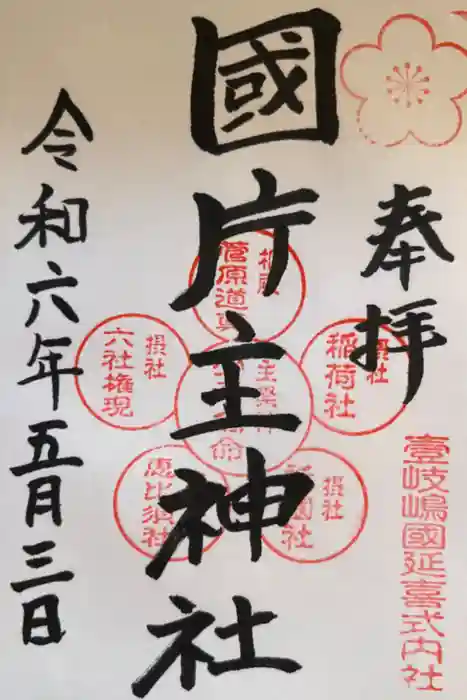 奉拝
壹岐嶋國延喜式内社
國片主神社
相殿
菅原道真
摂社
稲荷社
摂社
六社権現
摂社
恵比須社
摂社
令和六年五月三日